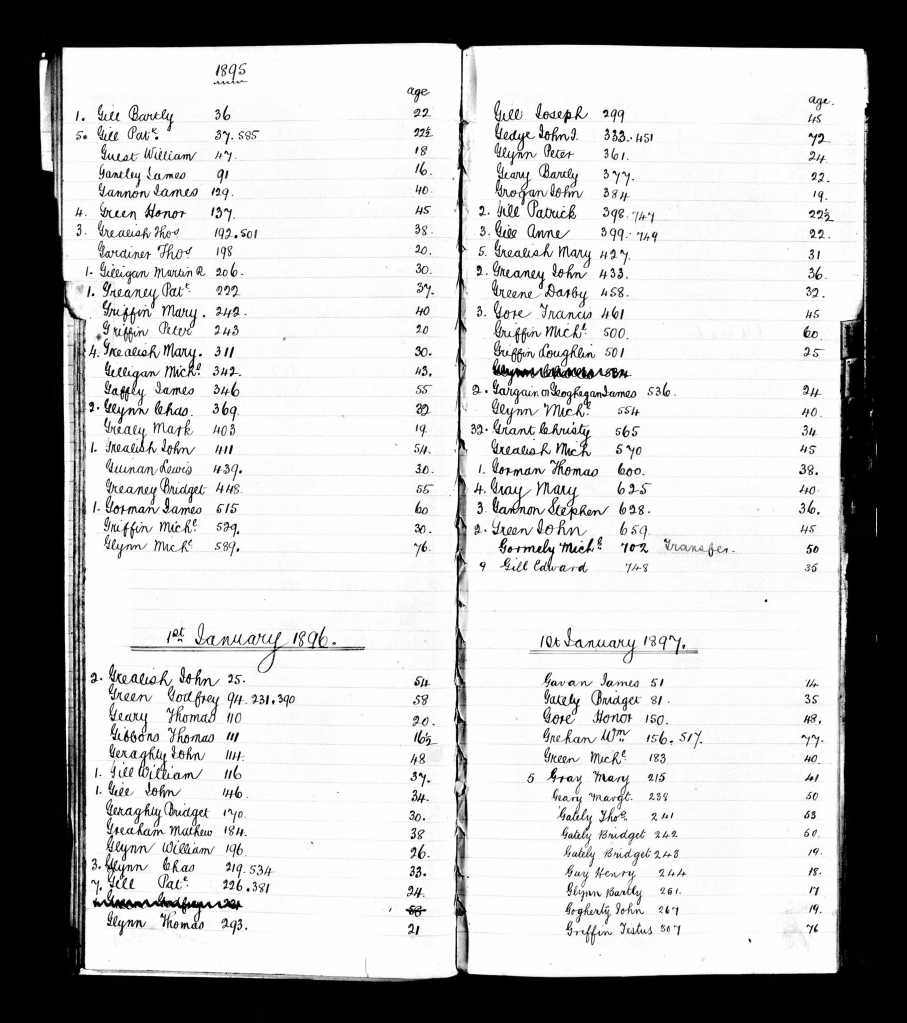 1895
age
1. Gill Bartly 36 22
5. Gill Patk. 37. 585 22½
Guest William 47. 18
Gantley James 91 16.
Gannon James 129. 40.
4. Green Honor 137. 45
3. Grealish Thos 192. 501 38.
Gardiner Thos 198 20.
1. Gilligan Martin R 206. 30.
1. Greaney Patk 222 37.
Griffin Mary. 242. 40
Griffin Peter 243 20
4. Grealish Mary. 311 30.
Gilligan Michl. 342. 43.
Gaffey James 346 55
2. Glynn Chas. 369. 32
Grealy Mark 403 19
1. Grealish John 411 54.
Guinan Lewis 439. 30.
Greaney Bridget 448. 55
1. Gorman James 515 60
Griffin Michl. 529. 30.
Glynn Michl. 589. 76.
1st January 1896.
2. Grealish John 25. 54
Green Godfrey 94. 231. 390 58
Geary Thomas 110 20.
Gibbons Thomas 111 16½
Geraghty John 114. 48
1. Gill William 116 37.
1. Gill John 146. 34.
Geraghty Bridget 170. 30.
Greaham Mathew 184. 38
Glynn William 196. 26.
3. Glynn Chas 219. 534 33.
7. Gill Patk 226. 381 24.
Godfrey 58
Glynn Thomas 293. 21
age.
Gill Joseph 299 45
Gedye John J. 333. 451 72
Glynn Peter 361. 24.
Geary Bartly 377. 22.
Grogan John 384 19.
2. Gill Patrick 398. 747 22½
3. Gill Anne 399. 749 22.
5. Grealish Mary 427. 31
2. Greaney John 433. 36.
Greene Darby 458. 32.
3. Gore Francis 461 45
Griffin Michl. 500. 60.
Griffin Loughlin 501 25
534
2. Gargain or Geoghegan James 536. 24
Glynn Michl. 554 40.
32. Grant Christy 565 34
Grealish Mich 570 45
1. Gorman Thomas 600. 38.
4. Gray Mary 625 40.
3. Gannon Stephen 628. 36.
2. Green John 659 45
Gormely Michl. 702 Transfer. 50
9 Gill Edward 748 35
1st January 1897.
Gavan James 51 14
Gately Bridget 81. 35
Gore Honor 150. 48.
Grehan Wm. 156. 517. 77.
Green Michl. 183 40
5 Gray Mary 215 41
Geary Margt. 238 50
Gately Thos. 241 53
Gately Bridget 242 50.
Gately Bridget 243 19.
Guy Henry 244 18.
Glynn Bartly 261. 17
Gogherty John 267 19.
Griffin Festus 307 76